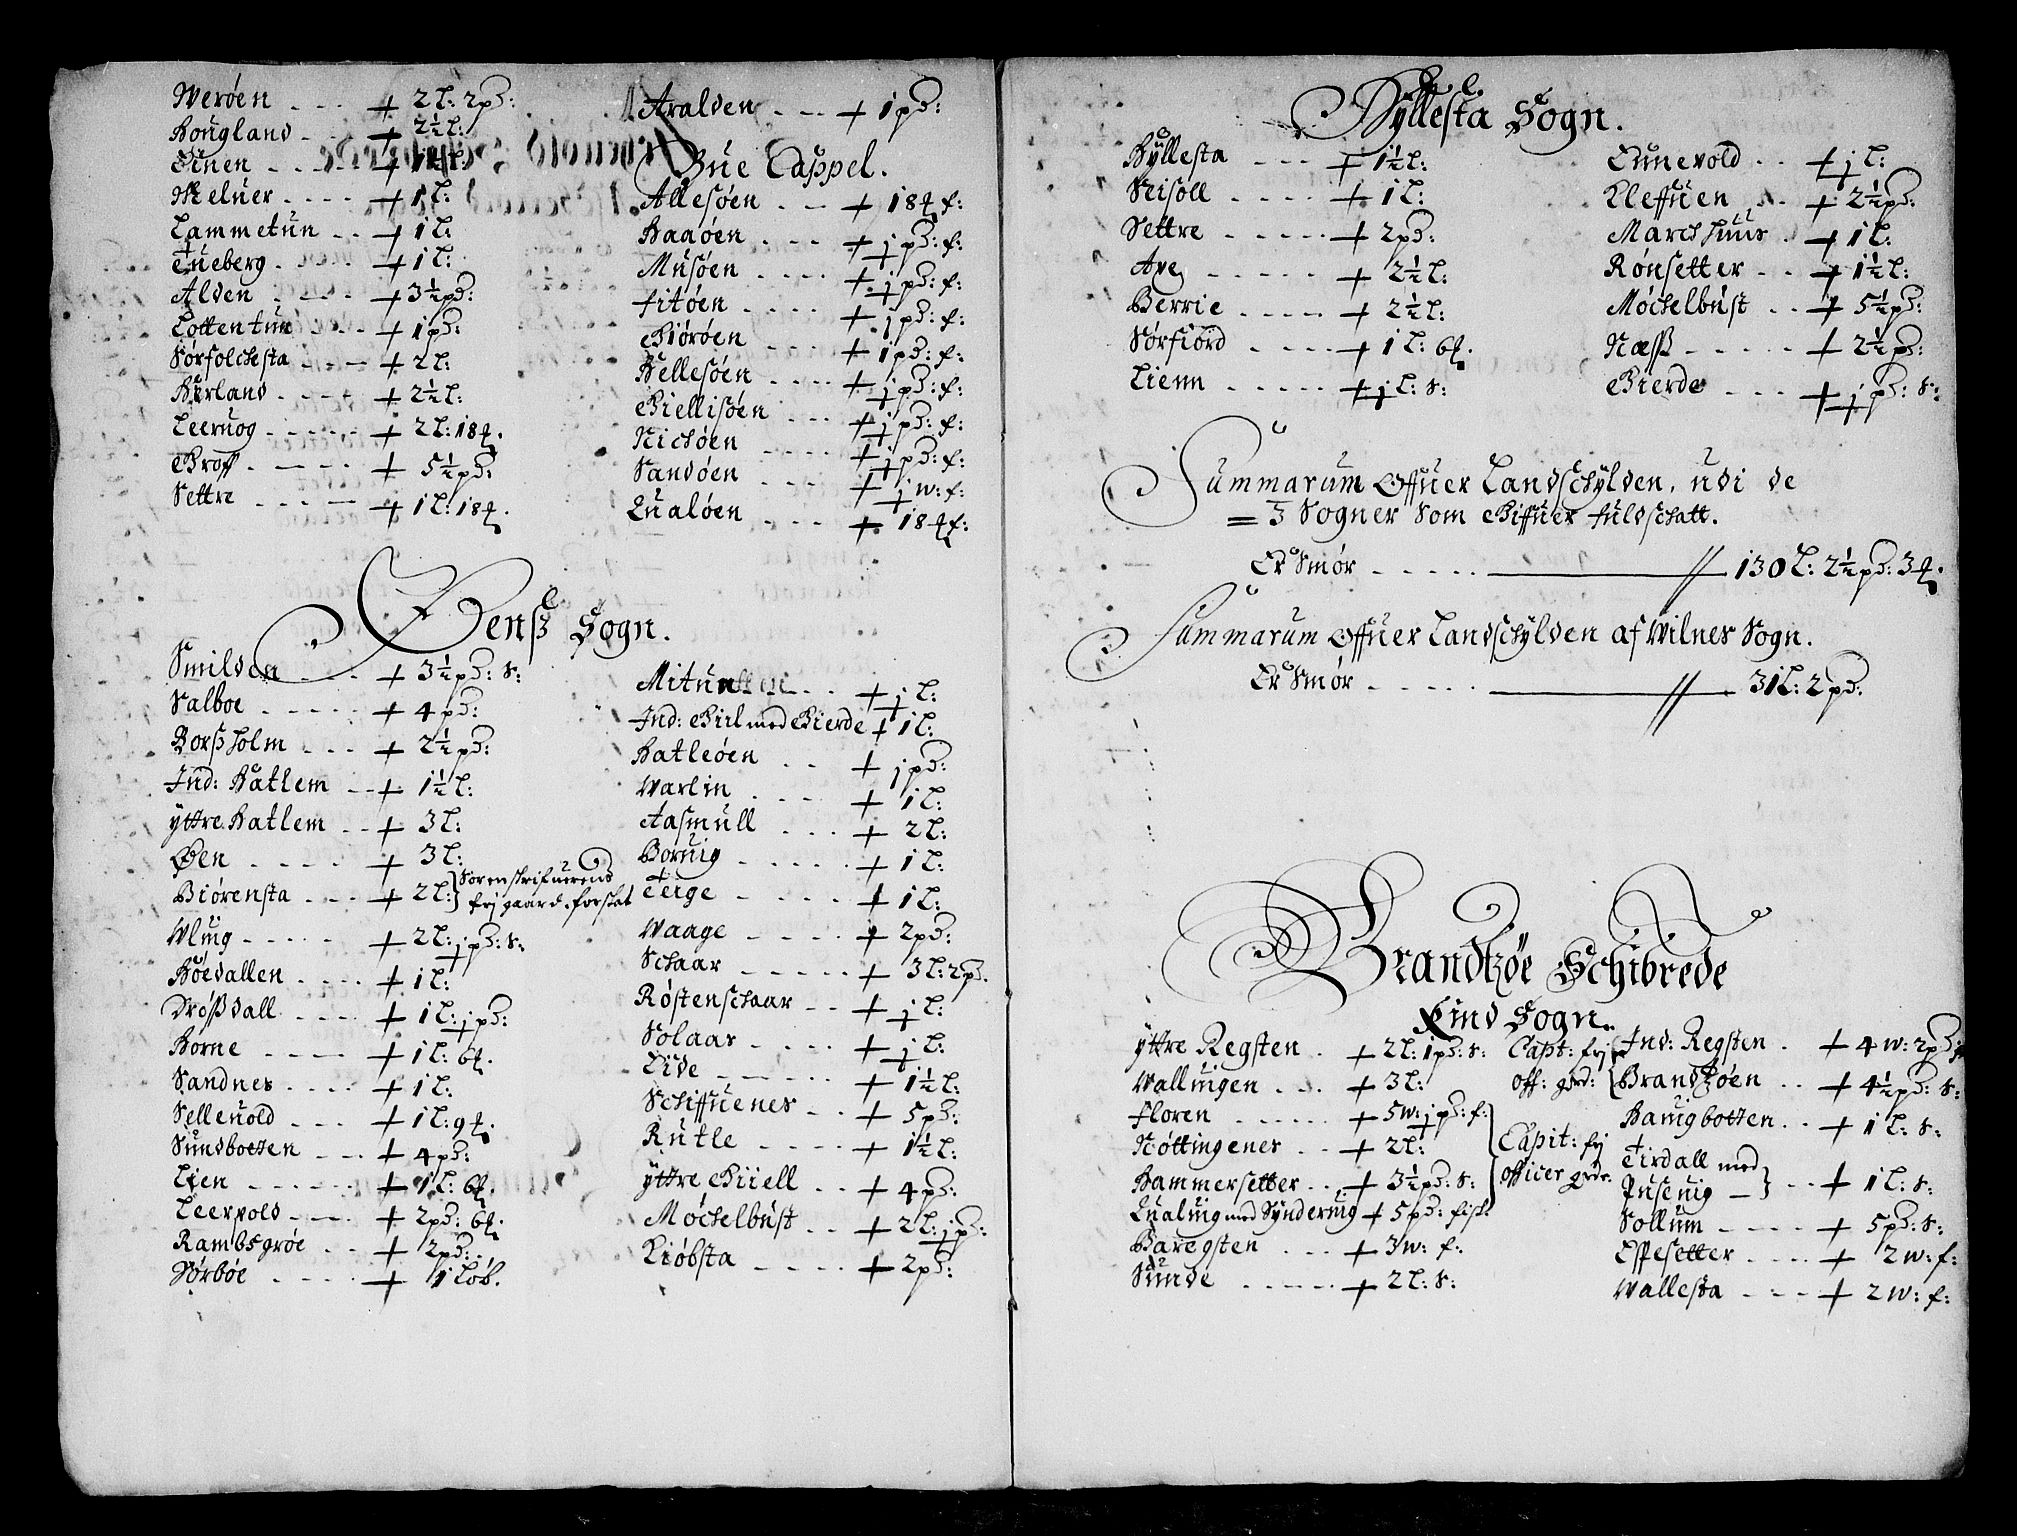 Werøen - - - + 2 L: 2 pd:
Hougland - - + 2½ L:
Einen - - - - + 1½ L:
Meluer - - - - + 1 L:
Lammetun - - + 1 L:
Tueberg - - - + 1 L:
Alden - - - - + 3½ pd:
Lottentun - - - + 1 pd:
Sørfolchesta - - - + 2 L:
Hørland - - - - + 2½ L:
Leeruog - - - - - + 2 L: 18 ₰.
Broff - - - - + 5½ pd:
Settre - - - - + 1 L: 18 ₰.
Aralden - - - + 1 pd:
Bue Cappel.
Allesøen - - - + 18 ₰ f:
Haaøen - - - + j pd: f:
Musøen - - - - + j pd: f:
Fitøen - - - - + j pd: f:
Biørøen - - - - + 1 pd: f:
Hellesøen - - - - + j pd: f:
Biellisøen - - - + j pd: f:
Nichøen - - - - + j pd: f:
Sandøen - - - + j w: f:
Qualøen - - - + 18 ₰ f:
Eens Sogn.
Smilden - - - + 3½ pd: s:
Salboe - - - - - + 4 pd:
Borsholm - - - + 2½ pd:
Ind: Hatlem - - + 1½ L:
yttre Hatlem - - + 3 L:
Øen - - - - + 3 L:
Biørensta - - - + 2 L: } Sorenskrifuerens
frj gaard. forskat
Wluig - - - - - + 2 L: j pd: s:
Høedallen - - - + 1 L:
Drøssdall - - - - + 1 L: j pd:
Horne - - - - + 1 L: 6 ₰.
Sandnes - - - - + 1 L:
Selleuold - - - + 1 L: 9 ₰.
Sundbotten - - - + 4 pd:
Lien - - - - - - + 1 L: 6 ₰.
Leeruold - - - - + 2 pd: 6 ₰.
Rambsgrøe - - + 2 pd:
Sørbøe - - - - + 1 Løb.
Mituallen - - - + j L:
Ind: Biil med Bierde + 1 L:
Hatleøen - - + j pd:
Warlin - - - - + 1 L:
Aasmull - - - + 2 L:
Boruig - - - - - + 1 L:
Teige - - - - + 1 L:
Waage - - - - - + 2 pd:
Schaar - - - - - + 3 L: 2 pd.
Røstenschaar - - + j L:
Solaas - - - - - + j L:
Eide - - - - - + 1½ L:
Schiffuenes - - + 5 pd:
Rutle - - - - + 1½ L:
yttre Biiell - - + 4 pd:
Møchelbust - - + 2 L: j pd:
Kiøbsta - - - - + 2 pd:
Hyllesta Sogn.
Hyllesta - - - + 1½ L:
Risøll - - - - - + 1 L:
Settre - - - - - + 2 pd:
Ave - - - - - + 2½ L:
Berrie - - - - - + 2½ L:
Sørfiord - - - - + 1 L: 6 ₰.
Lienn - - - - - + j L: s:
Eunevold - - + j L:
Kleffuen - - + 2½ pd:
Marchhuus - + 1 L:
Rønsetter - - + 1½ L:
Møchelbust - - + 5½ pd:
Næss - - - - + 2½ pd:
Bierde - - - + j pd: s:
Summarum Offuer Landschylden, udi de
= 3 Sogner som Giffuer fuldschatt.
Er Smør - - - - - // 130 L: 2½ pd: 3 ₰.
Summarum Offuer Landschylden af Wilnes Sogn.
Er Smør - - - - - // 31 L: 2 pd:
Brandsøe Schibrede
Kind Sogn.
yttre Regsten - + 2 L: 1 pd: s:
Walluigen - - - + 3 L:
Floren - - - - - + 5 w: j pd: f:
Nøttingenes - - + 2 L:
Hammersetter - - + 3½ pd: s:
Capit: frj
officer gdr:
Qualuig med Synderuig + 5 pd: fisk:
Baregsten - - - + 3 w: f:
Sunde - - - - - + 2 L: s:
Capt: frj
off: grd:
Ind: Regsten - + 4 w: 2 pd:
Brandsøen - - + 4½ pd: s:
Hauigbotten - - + 1 L: s:
Tirdall med
Pusuig - } - - + 1 L: s:
Sollum - - - - + 5 pd: s:
Espesetter - - - + 2 w: f:
Wallesta - - - + 2 w: f: